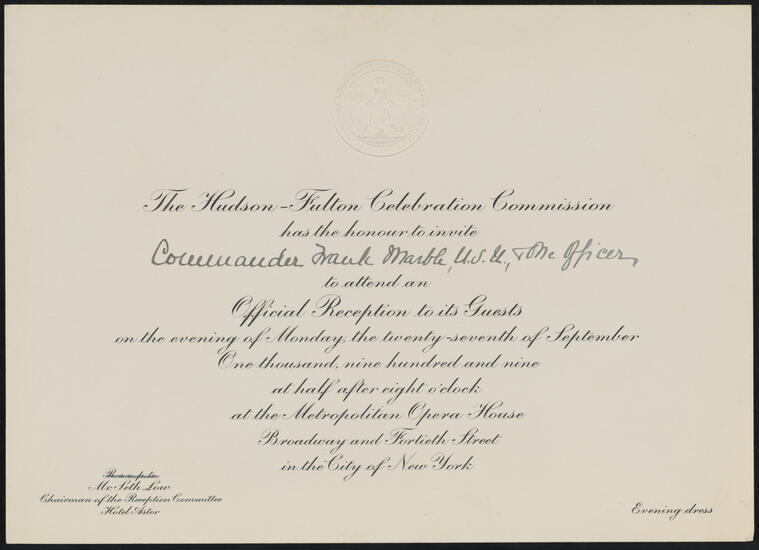 The Hudson-Fulton Celebration Commission
has the honour to invite
Commander Frank Marble, U.S.N., & One Officer,
to attend an
Official Reception to its Guests
on the evening of Monday, the twenty-seventh of September
One thousand, nine hundred and nine
at half after eight o'clock
at the Metropolitan Opera House
Broadway and Fortieth Street
in the City of New York
Mr. Seth Low
Chairman of the Reception Committee
Hotel Astor
Evening dress